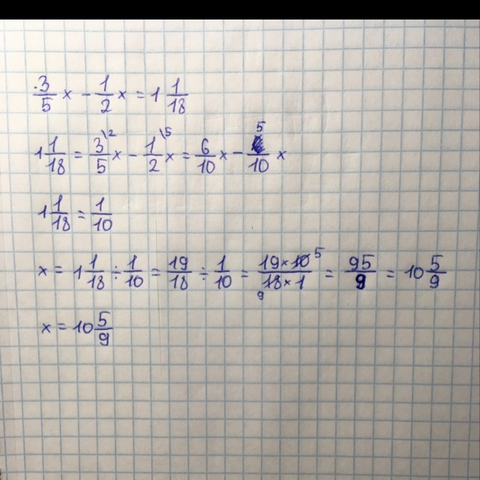 3/5 x - 1/2 x = 1 1/18
1 1/18 = 3/5\2 x - 1/2\5 x = 6/10 x - 5/10 x
1 1/18 = 1/10
x = 1 1/18 ÷ 1/10 = 19/18 ÷ 1/10 = 19×10 5/18×1 9 = 95/9 = 10 5/9
x = 10 5/9